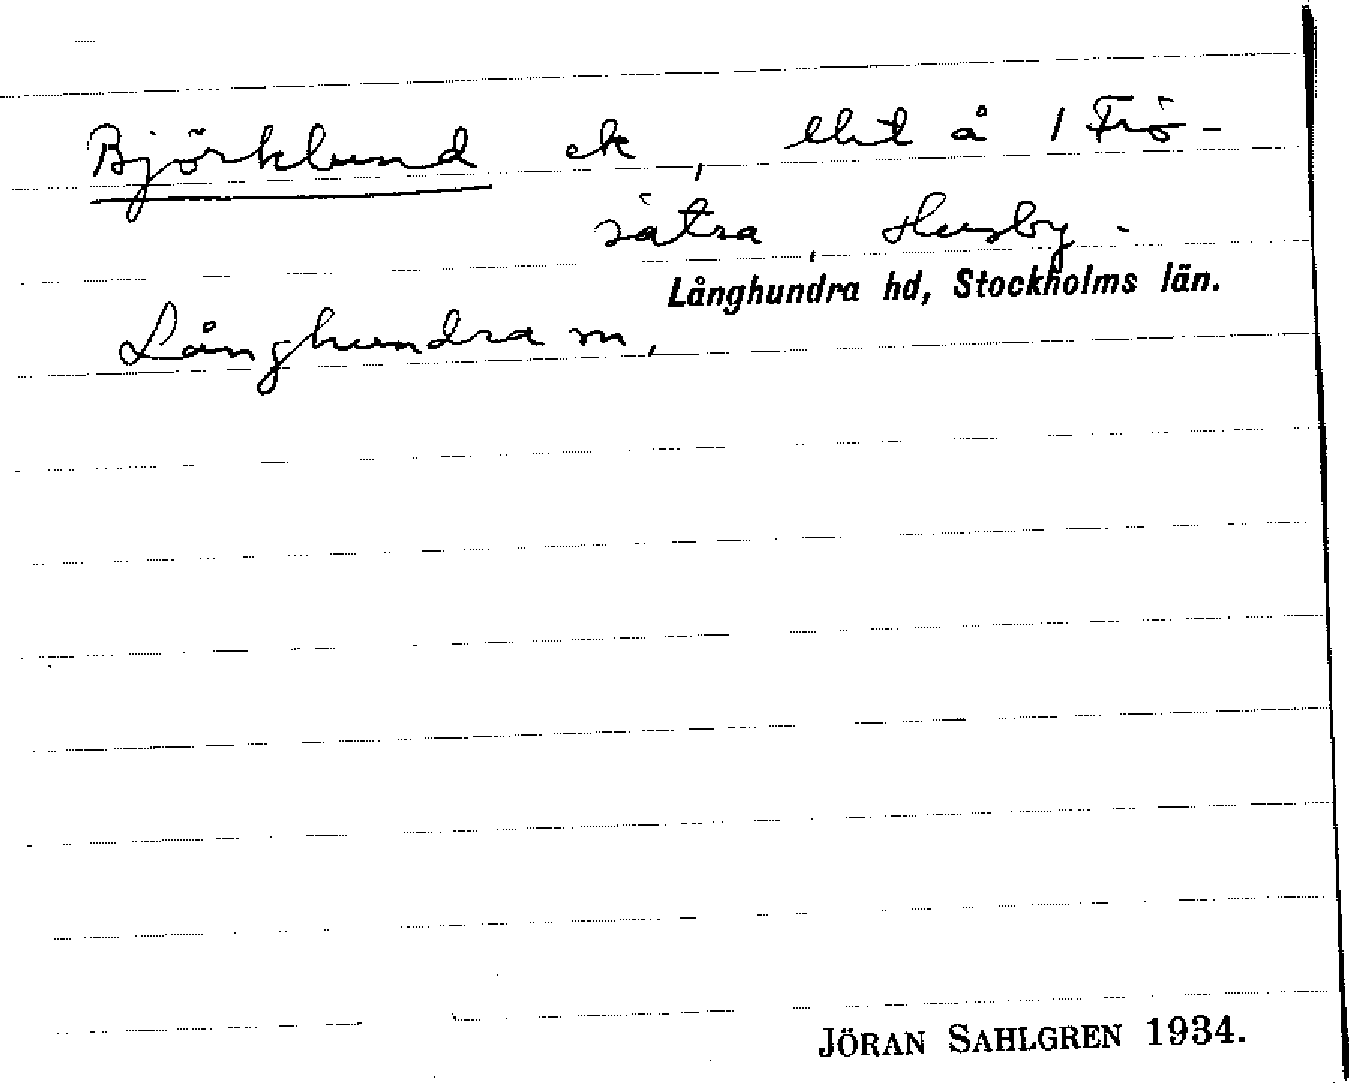 Björklund ek, elit å 1 Frö-
sätra, Husby-
Långhundra hd, Stockholms län.
Långhundra sn,
JÖRAN SAHLGREN 1934.